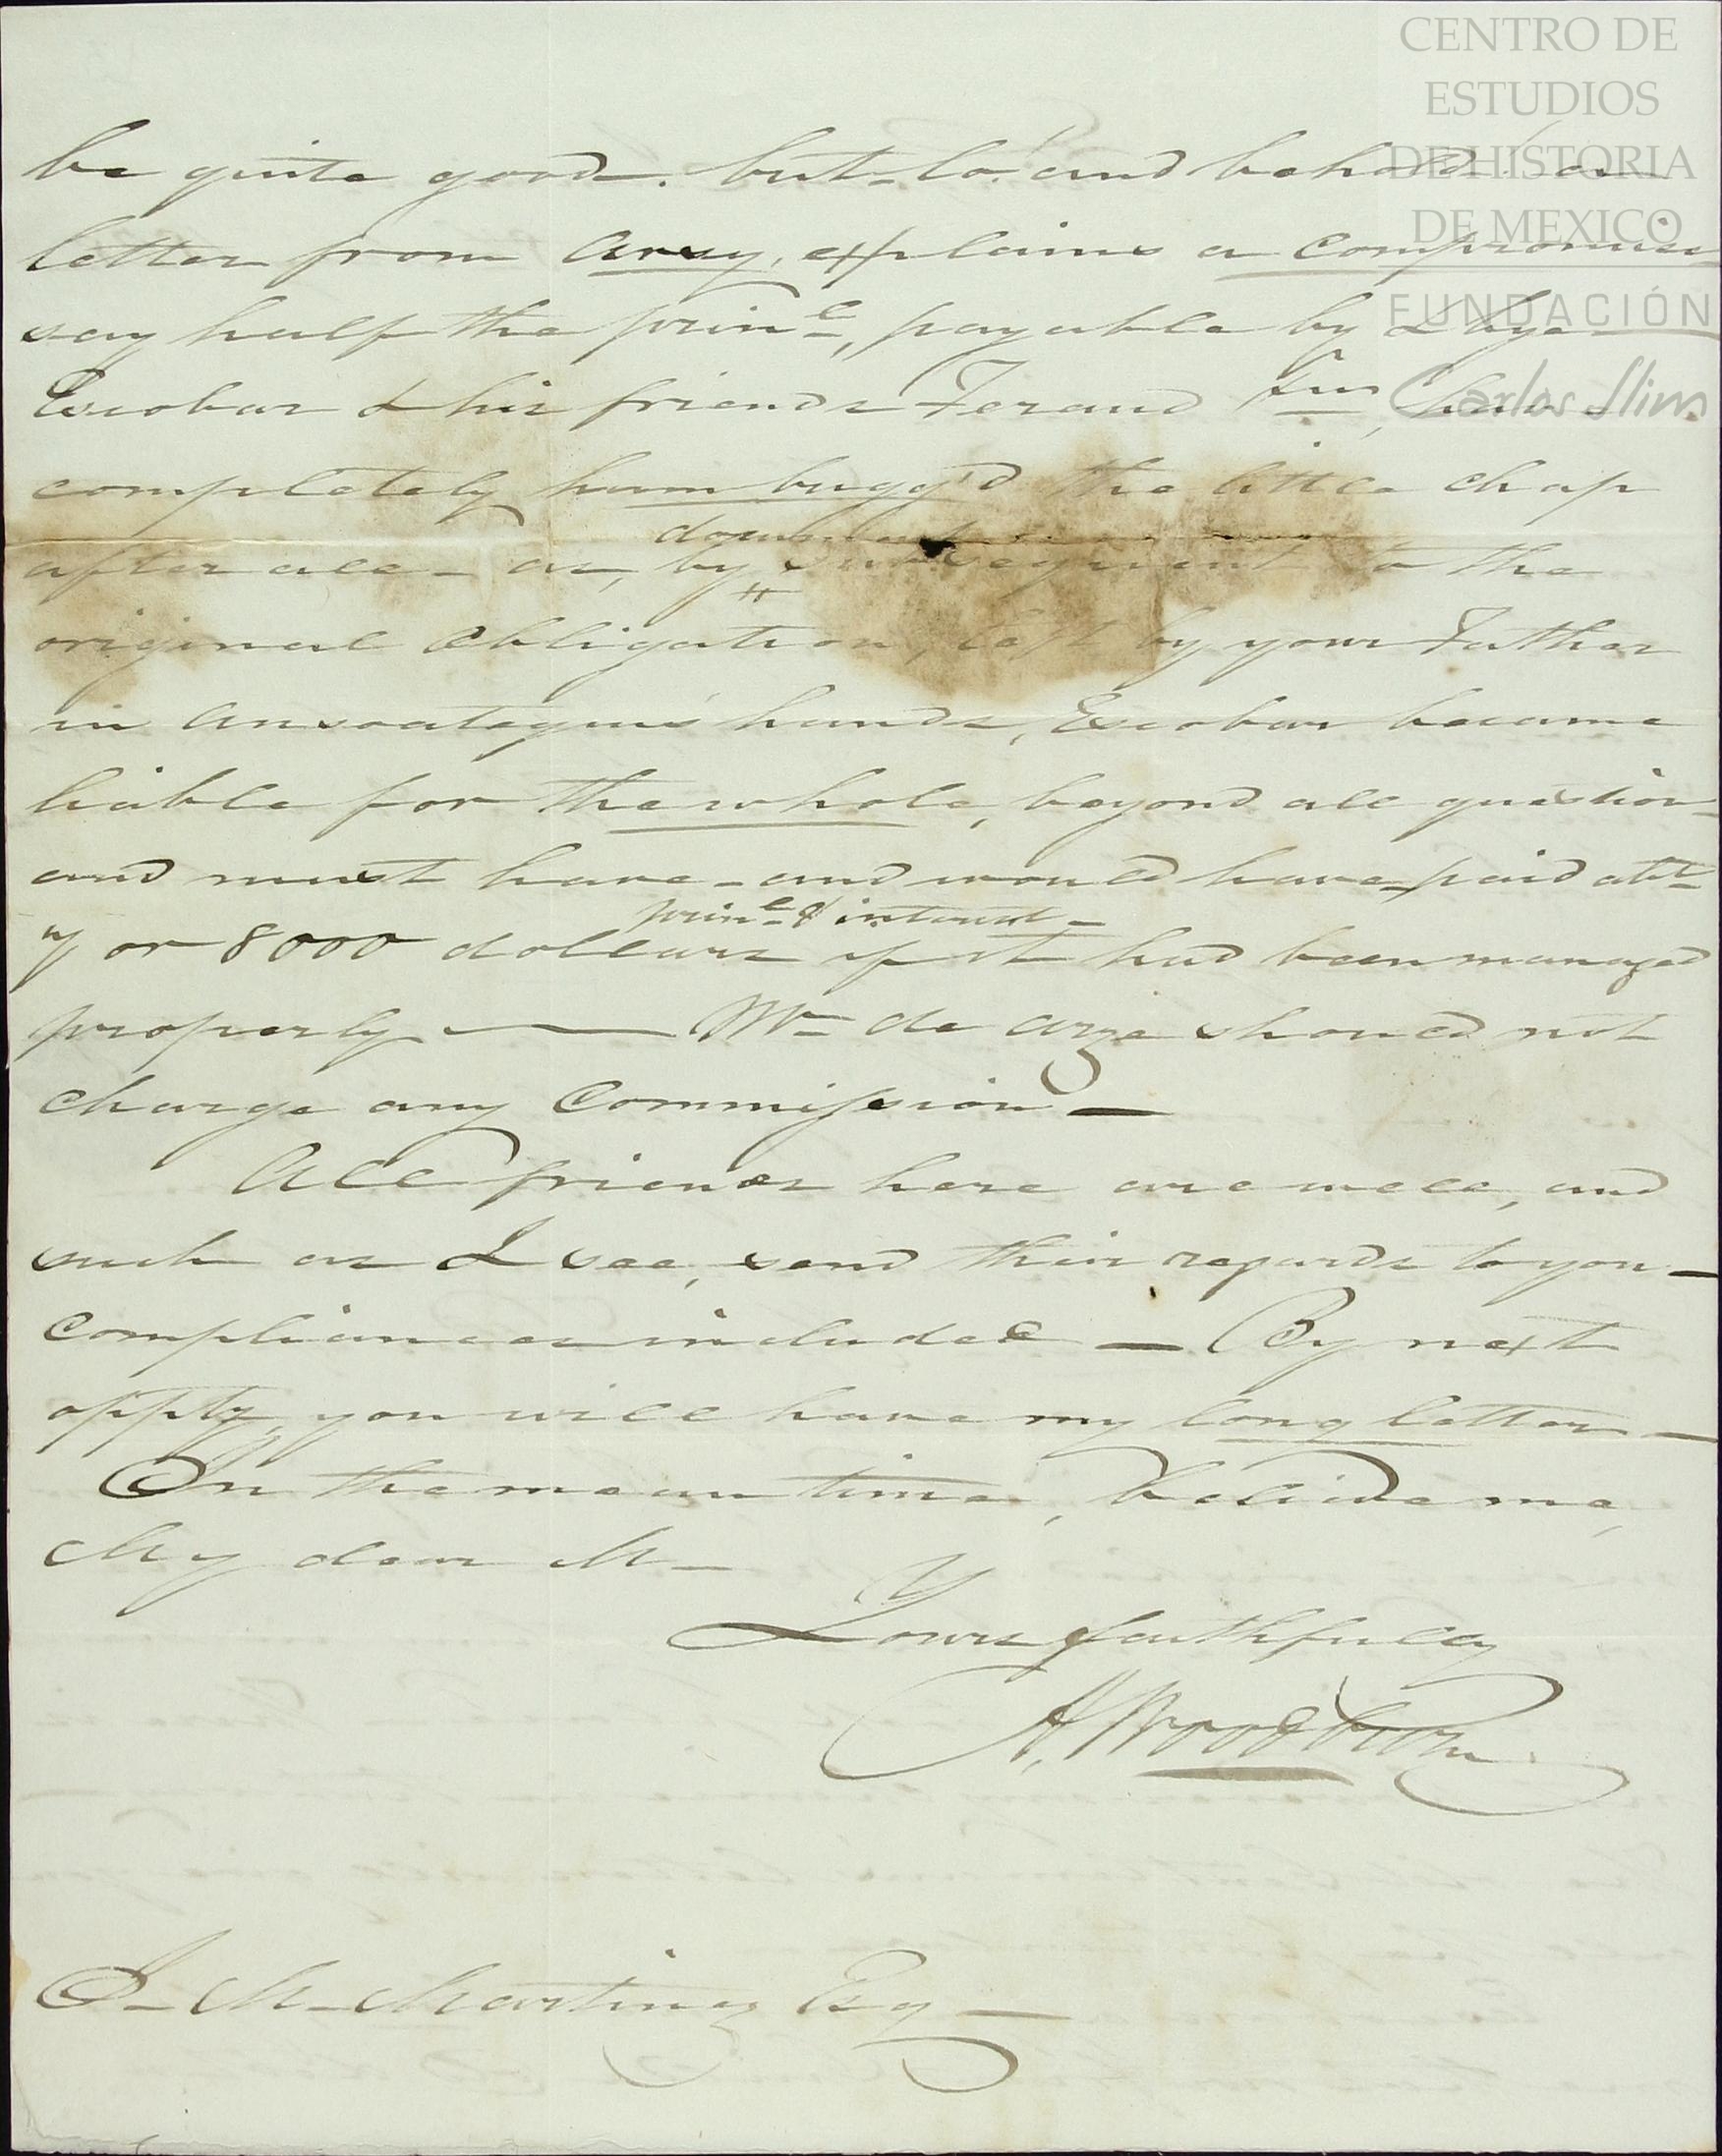 CENTRO DE
ESTUDIOS
DE HISTORIA
DE MEXICO
FUNDACIÓN
Carlos Slim
be quite good. but lo! and behold! a
letter from Arzy, explains a compromise
say half the prin.l, payable by & bye
Escobar & his friends Ferand
completely humbugg'd the little chap
after all – as, by subsequent to the
document
original obligation, left by your Father
in Ansoategui's hands, Escobar became
liable for the whole, beyond all question
and must have – and would have paid
prin.l & interest –
7 or 8000 dollars if it had been managed
properly — Mr de Arze should not
charge any Commission –
All friends here are well, and
such as I see, send their regards to you –
Compliances included – By next
oppty, you will have my long letter –
In the mean time, believe me,
My dear M –
Yours faithfully
A. Woodburn
J. M. Martinez Esq –